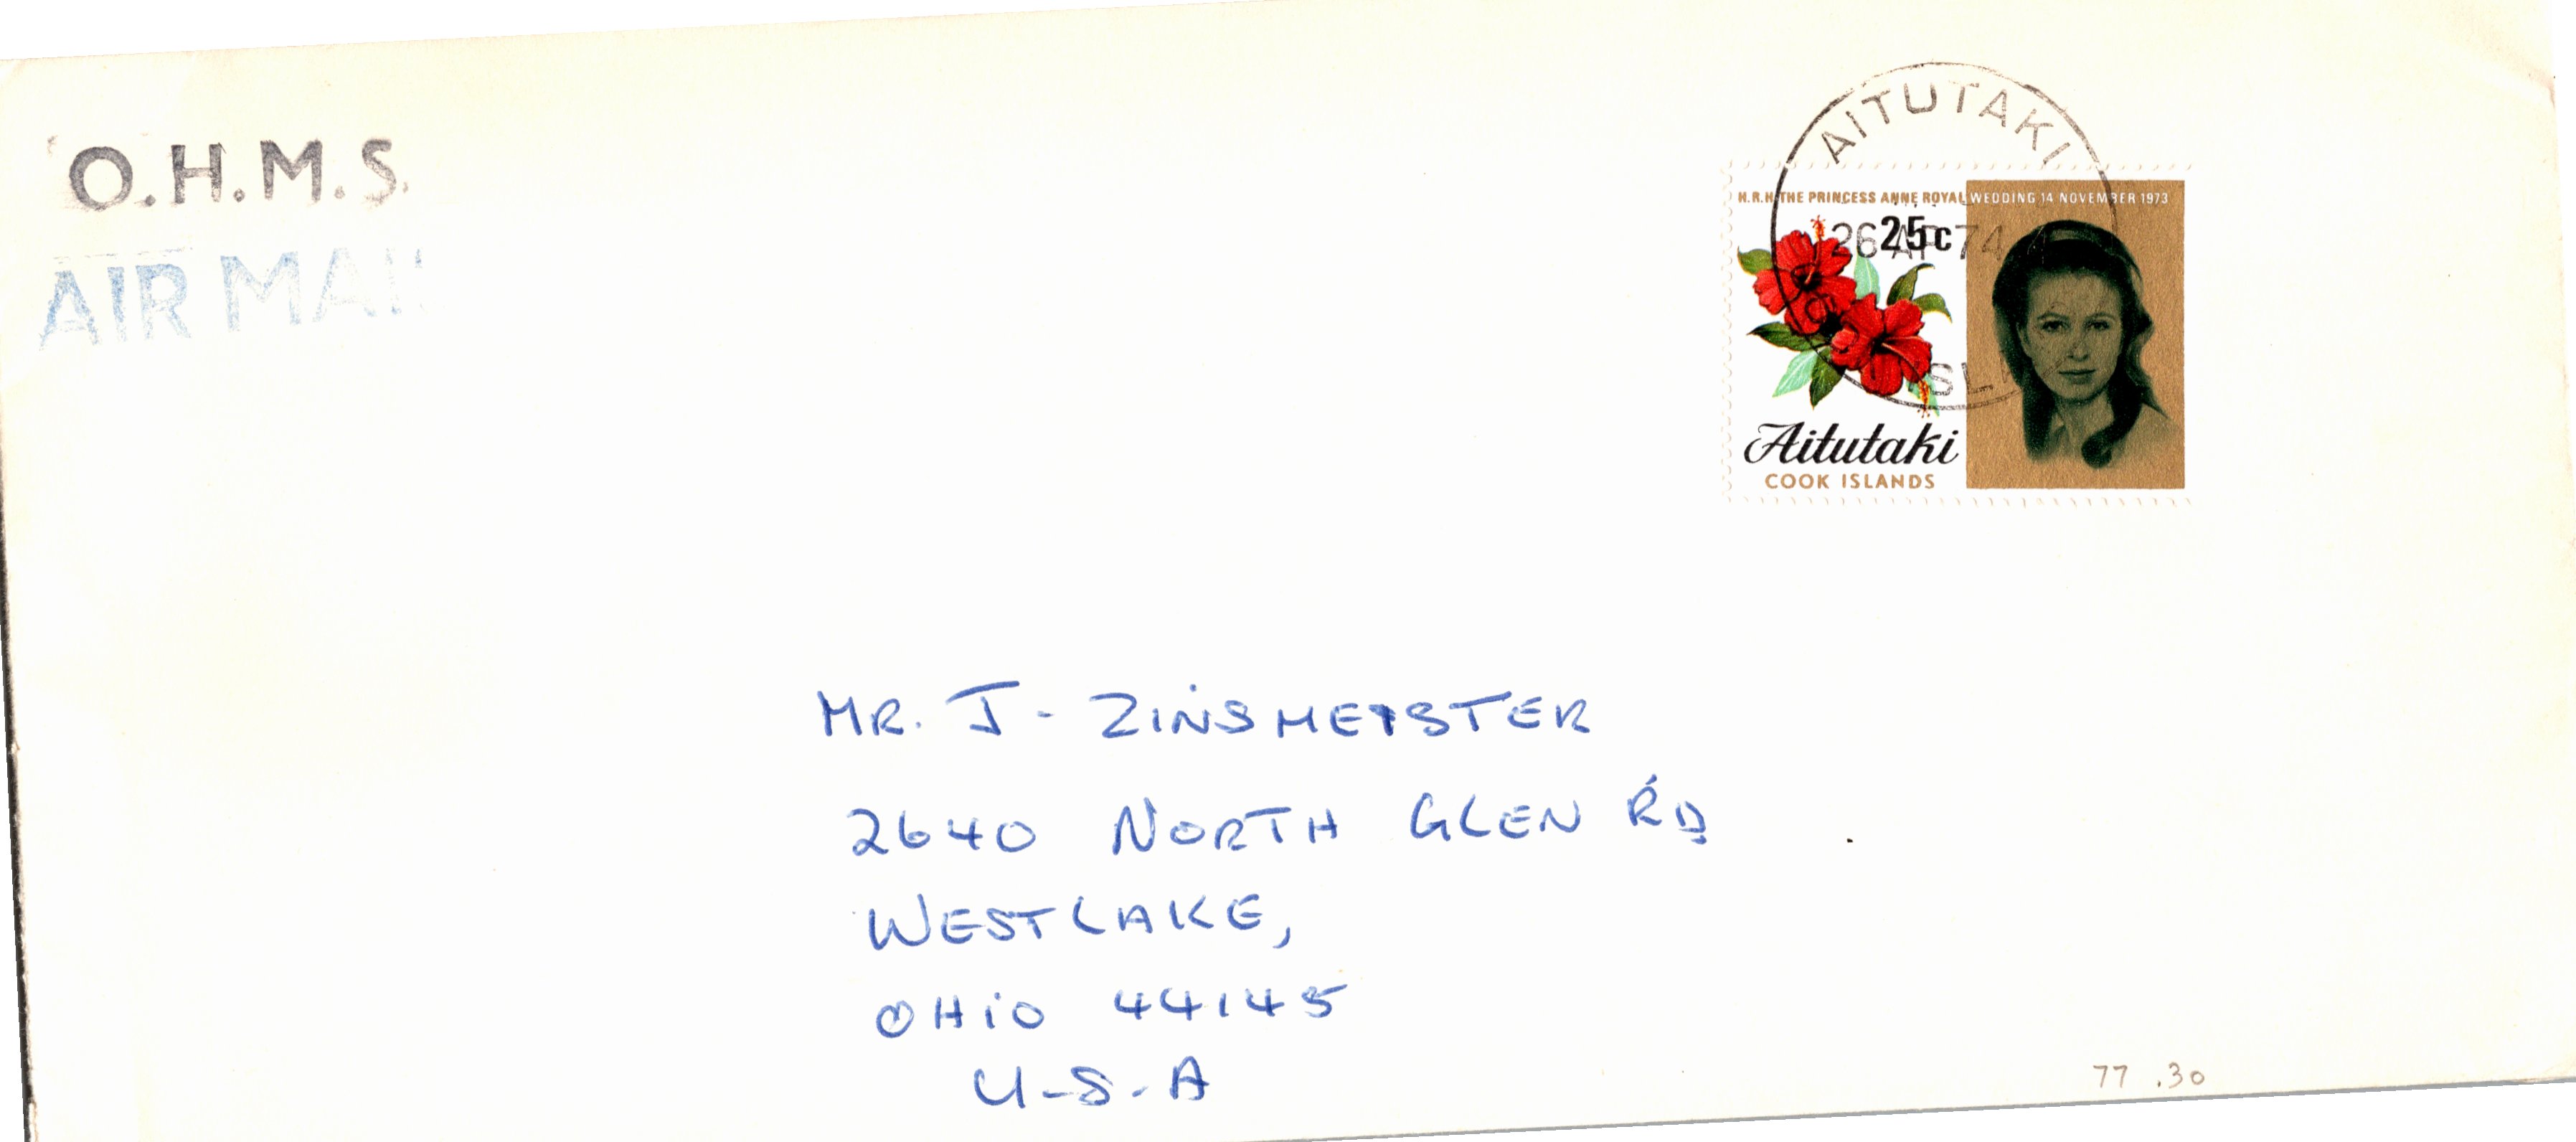 O.H.M.S.
AIR MAIL
AITUTAKI
H.R.H. THE PRINCESS ANNE ROYAL WEDDING 14 NOVEMBER 1973
25c
26 AP 74
Aitutaki
COOK ISLANDS
MR. J- ZINSMEISTER
2640 NORTH GLEN RD
WESTLAKE,
OHiO 44145
U-S-A
77 .30